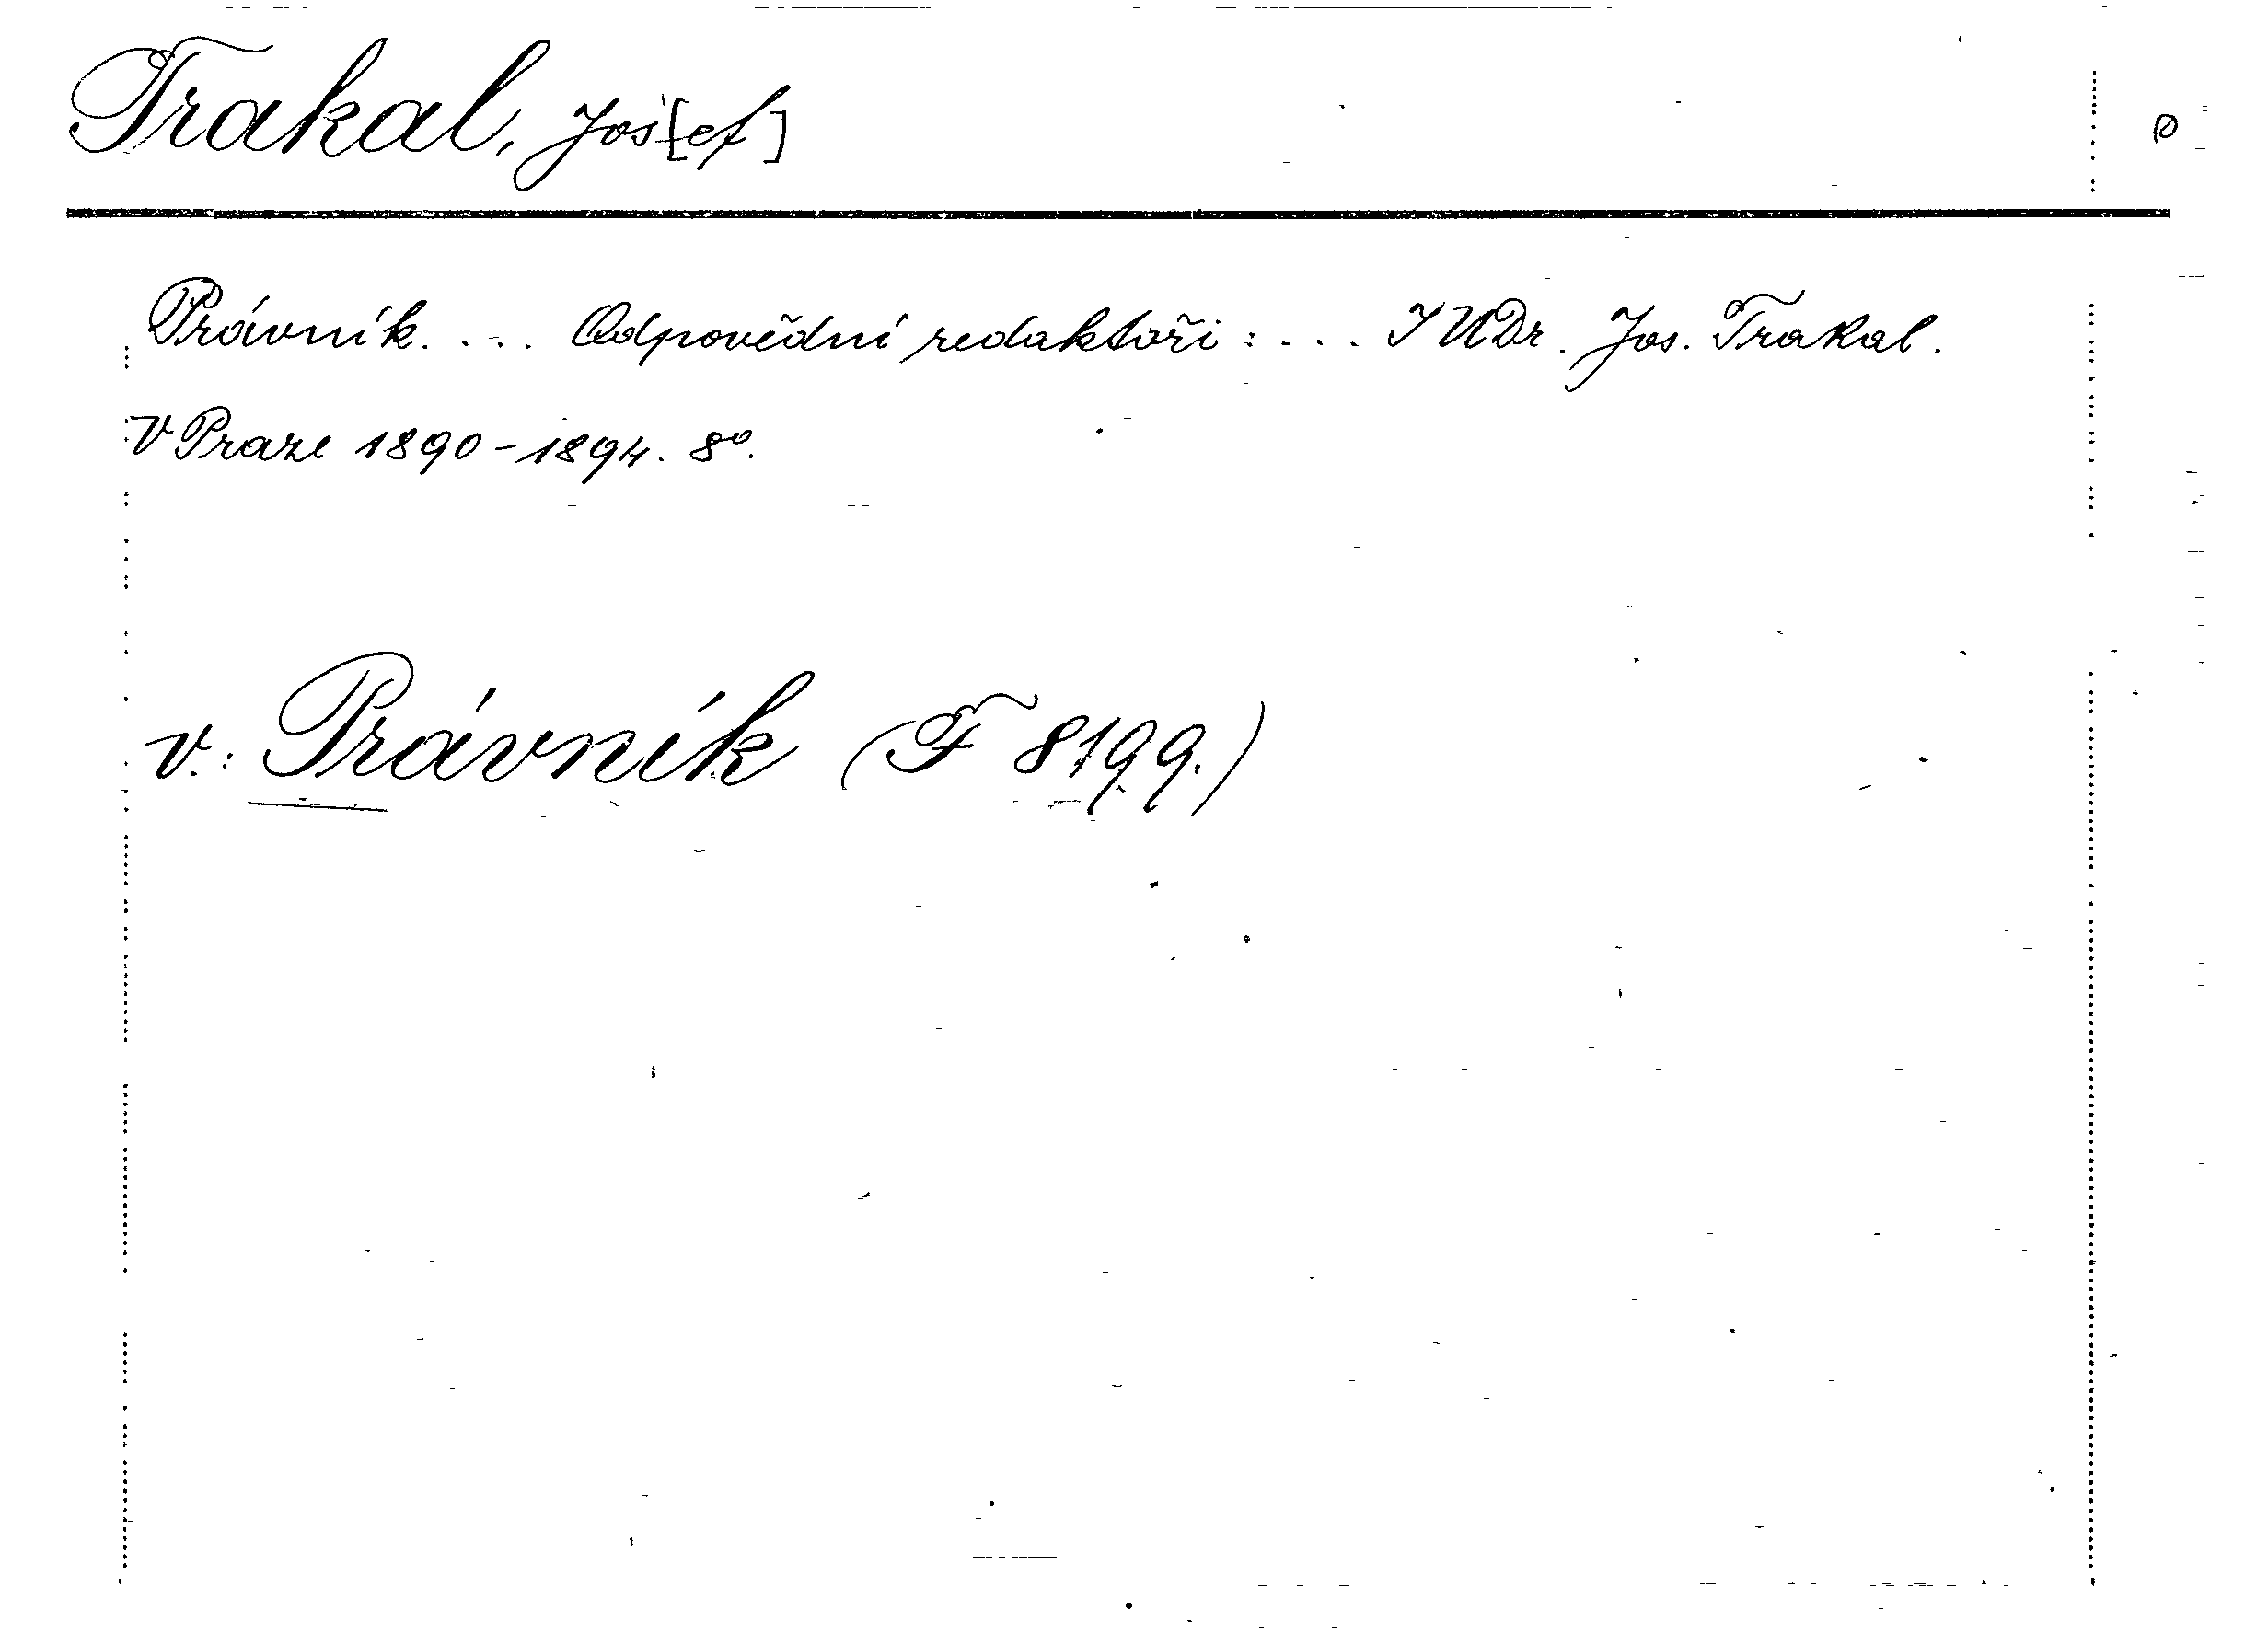 Trakal, Jos[ef]
p
Právník. ... Odpovědní redaktoři: ... JUDr. Jos. Trakal.
V Praze 1890-1894. 8º.
v.: Právník (F 8199.)